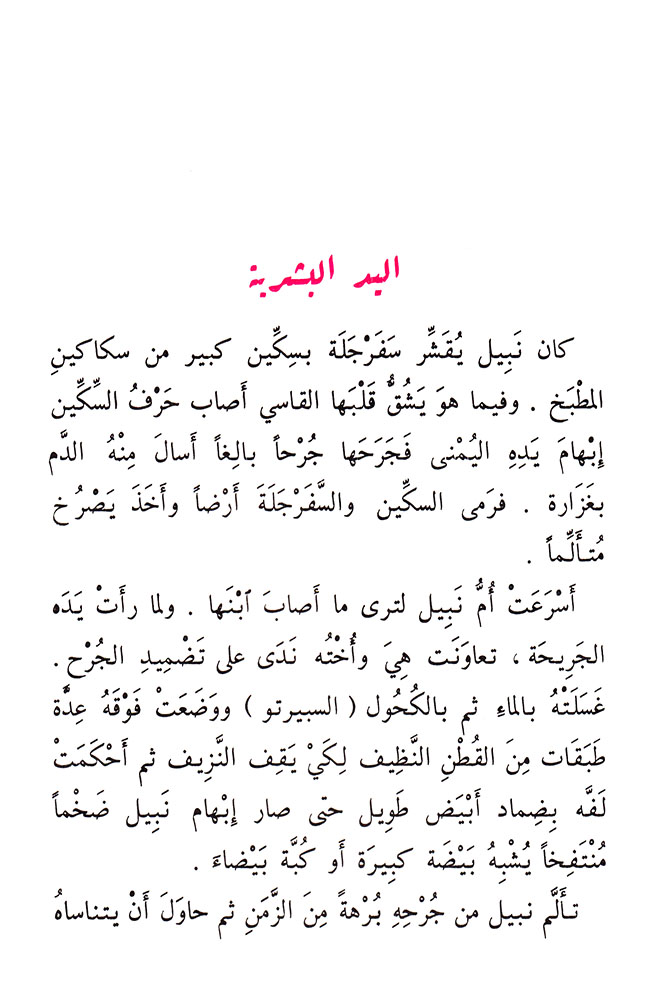 اليد البشرية
كان نَبِيل يُقَشِّر سَفَرْجَلَة بسِكِّين كبير من سكاكينِ
المطْبَخ . وفيما هوَ يَشُقُّ قَلْبَها القاسي أَصاب حَرْفُ السِّكِّين
إِبْهامَ يَدِهِ اليُمْنى فَجَرَحَها جُرْحاً بالِغاً أَسالَ مِنْهُ الدَّم
بغَزَارة . فرَمى السكِّين والسَّفَرْجَلَةَ أَرْضاً وأَخَذَ يَصْرُخ
مُتأَلِّماً .
أَسْرَعَتْ أُمُّ نَبِيل لترى ما أَصابَ ٱبْنَها . ولما رأَتْ يَدَه
الجَرِيحَة ، تعاوَنَت هِيَ وأُخْتُه نَدَى على تَضْمِيدِ الجُرْح .
غَسَلَتْهُ بالماءِ ثم بالكُحُول ( السبيرتو ) ووَضَعَتْ فَوْقَهُ عِدَّة
طَبَقَات مِنَ القُطْنِ النَّظِيف لِكَيْ يَقِف النَّزِيف ثم أَحْكَمَتْ
لَفَّه بِضِماد أَبْيَض طَوِيل حتى صار إِبْهام نَبِيل ضَخْماً
مُنْتَفِخاً يُشْبِهُ بَيْضَة كبِيرَة أَو كُبَّة بَيْضاءَ .
تأَلَّم نبيل من جُرْحِهِ بُرْهةً مِنَ الزَّمَنِ ثم حاوَلَ أَنْ يتناساهُ